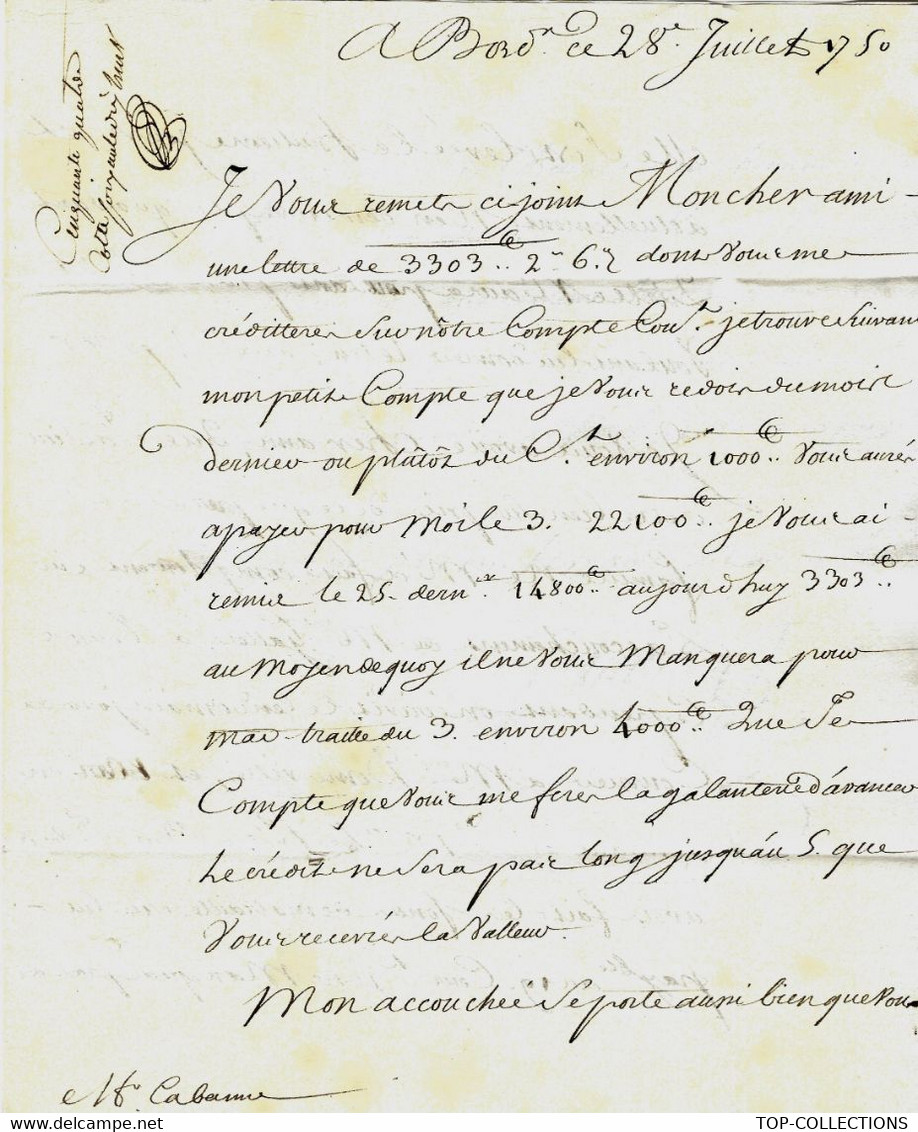 A Bord.x ce 28.e Juillet 1750
Cinquante quatre
Cotte soixante dix huit
Je vous remets cijoint Moncher ami
une lettre de 3303.. 2.. 6.. dont vous me
créditteres sur nôtre Compte Cou.t jetrouve suivant
mon petit Compte que je vous redois du mois
dernier ou plûtôt du C.t environ 1000.. vous aurés
apayer pour Moi le 3. 22100.. je vous ai
remis le 25. dern.er 14800.. aujourdhuy 3303..
au Moyendequoy il ne vous Manquera pour
ma traitte du 3. environ 4000.. Que Je
Compte que vous me feres la galanterie d'avancer
Le crédit ne sera pas long jusquáu 5. que
vous recevrés la valleur.
Mon accouchée se porte aussi bien que vou
Mr. Cabanne
TOP-COLLECTIONS